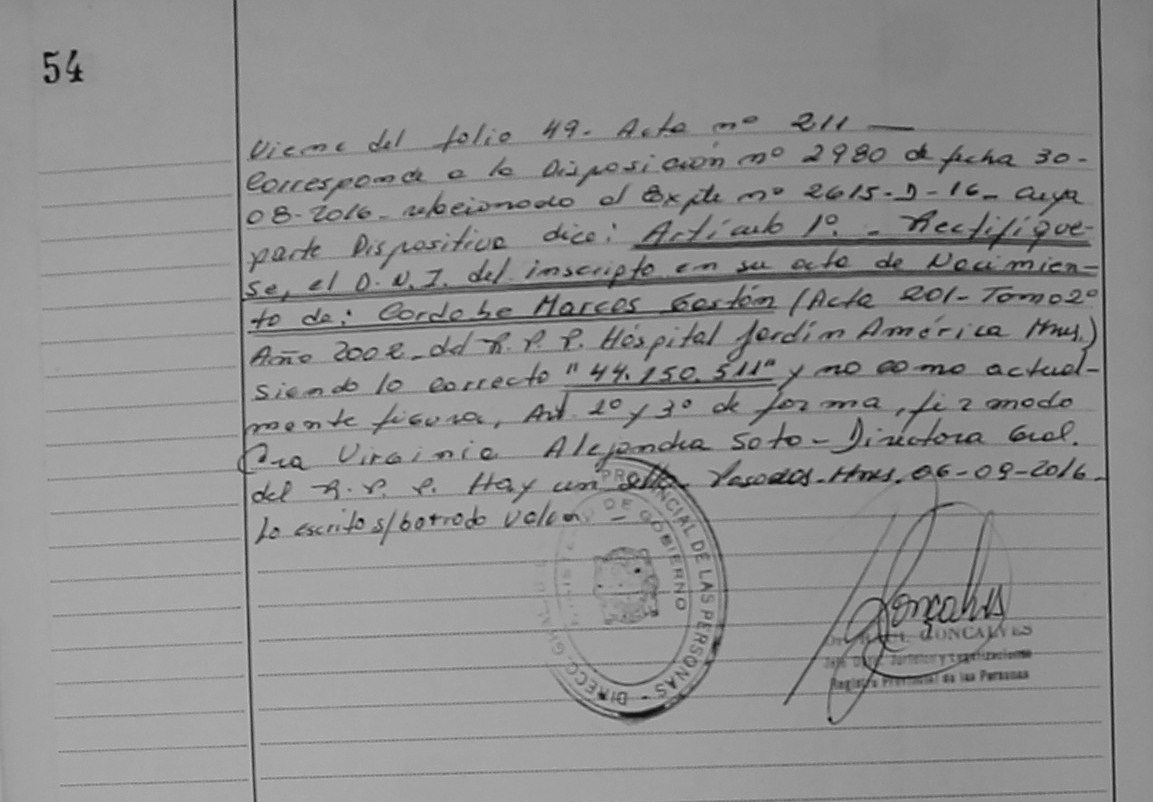 54
Viene del folio 49. Acta nº 211 —
Corresponde a la Disposición nº 2980 de fecha 30-
08-2016- relacionado al Expte nº 2615-D-16- cuya
parte Dispositiva dice: Artículo 1º. - Rectifíque-
se, el D.N.I. del inscripto en su acta de Nacimien-
to de: Cordoba Marcos Gastón (Acta 201- Tomo 2º
Año 2002. del R.P.P. Hospital Jardín América Mnes.)
siendo lo correcto "44.150.511" y no como actual-
mente figura, Art. 2º y 3º de forma, firmado
Dra Virginia Alejandra Soto - Directora Gral.
del R.P.P. Hay un sello. Posadas. Mnes. 06-09-2016-
Lo escrito s/borrado Vale. -
DIRECC. GRAL. PROVINCIAL DE LAS PERSONAS -
MINISTERIO DE GOBIERNO
Gonçalves
GONCALVES
Jefe Dpto. Jurídico y Legalizaciones
Registro Provincial de las Personas